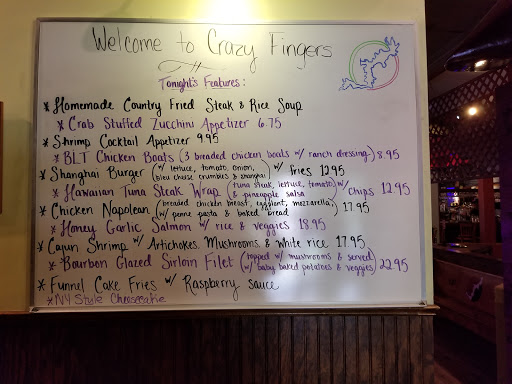 Welcome to Crazy Fingers
Tonight's Features:
* Homemade Country Fried Steak & Rice Soup
* Crab Stuffed Zucchini Appetizer 6.75
* Shrimp Cocktail Appetizer 9.95
* BLT Chicken Boats (3 breaded chicken boats w/ ranch dressing) 8.95
* Shanghai Burger (w/ lettuce, tomato, onion, bleu cheese crumbles & shanghai) w/ Fries 12.95
* Hawaiian Tuna Steak Wrap (tuna steak, lettuce, tomato & pineapple salsa) w/ chips 12.95
* Chicken Napolean (breaded chicken breast, eggplant, mozzarella, w/ penne pasta & baked bread) 17.95
* Honey Garlic Salmon w/ rice & veggies 18.95
* Cajun Shrimp w/ Artichokes, Mushrooms & white rice 17.95
* Bourbon Glazed Sirloin Filet (topped w/ mushrooms & served w/ baby baked potatoes & veggies) 22.95
* Funnel Cake Fries w/ Raspberry sauce
* NY Style Cheesecake